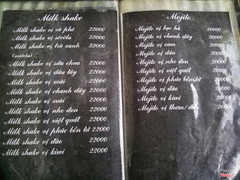 Milk shake
Milk shake vị cà phê 22000
Milk shake vị socola 22000
Milk shake vị trà xanh 22000
Milk shake vị sữa chua 22000
Milk shake vị dâu tây 22000
Milk shake vị xoài 22000
Milk shake vị chanh dây 22000
Milk shake vị xoài 22000
Milk shake vị nho đen 22000
Milk shake vị việt quất 22000
Milk shake vị phúc bồn tử 22000
Milk shake vị đào 22000
Milk shake vị kiwi 22000
Mojito
Mojito vị bạc hà 20000
Mojito vị chanh dây 20000
Mojito vị cam 20000
Mojito vị dâu 20000
Mojito vị nho đen 20000
Mojito vị việt quất 20000
Mojito vị phúc bồn tử 20000
Mojito vị đào 20000
Mojito vị kiwi 20000
Mojito vị thơm/ 20000